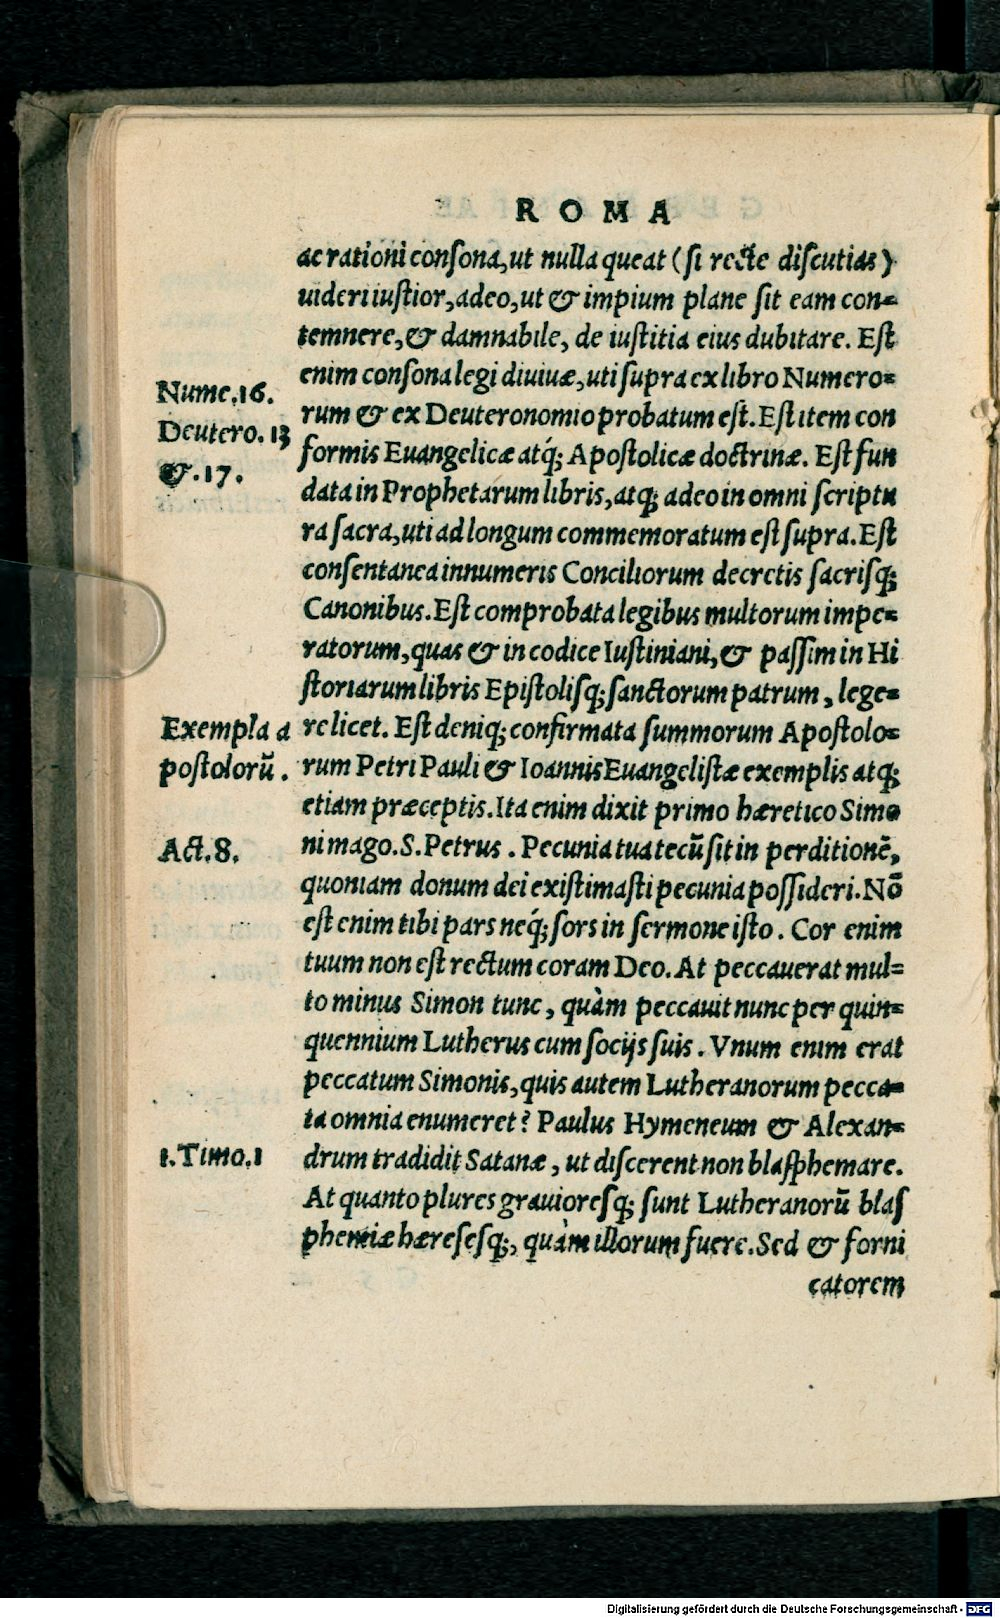 ROMA
ac rationi conſona, ut nulla queat (ſi recte diſcutias)
uideri iuſtior, adeo, ut & impium plane ſit eam con=
temnere, & damnabile, de iuſtitia eius dubitare. Eſt
enim conſona legi diuiuæ, uti ſupra ex libro Numero=
Nume.16.
rum & ex Deuteronomio probatum eſt. Eſt item con
Deutero.13
formis Euangelicæ atq́; Apoſtolicæ doctrinæ. Eſt fun
&.17.
data in Prophetarum libris, atq; adeo in omni ſcriptu
ra ſacra, uti ad longum commemoratum eſt ſupra. Eſt
conſentanea innumeris Conciliorum decretis ſacriſq;
Canonibus. Eſt comprobata legibus multorum impe=
ratorum, quas & in codice Iuſtiniani, & paſſim in Hi
ſtoriarum libris Epiſtoliſq; ſanctorum patrum, lege=
Exempla a
re licet. Eſt deniq; confirmata ſummorum Apoſtolo=
poſtolorū.
rum Petri Pauli & Ioannis Euangeliſtæ exemplis atq;
etiam præceptis. Ita enim dixit primo hæretico Simo
Act.8.
ni mago. S. Petrus. Pecunia tua tecū ſit in perditionē,
quoniam donum dei exiſtimaſti pecunia poſſideri. Nō
eſt enim tibi pars neq́; ſors in ſermone iſto. Cor enim
tuum non eſt rectum coram Deo. At peccauerat mul=
to minus Simon tunc, quàm peccauit nunc per quin=
quennium Lutherus cum ſocijs ſuis. Vnum enim erat
peccatum Simonis, quis autem Lutheranorum pecca=
ta omnia enumeret? Paulus Hymeneum & Alexan=
1.Timo.1
drum tradidit Satanæ, ut diſcerent non blaſphemare.
At quanto plures grauioreſq; ſunt Lutheranorū blaſ
phemiæ hæreſeſq;, quàm illorum fuere. Sed & forni
catorem
Digitalisierung gefördert durch die Deutsche Forschungsgemeinschaft - DFG